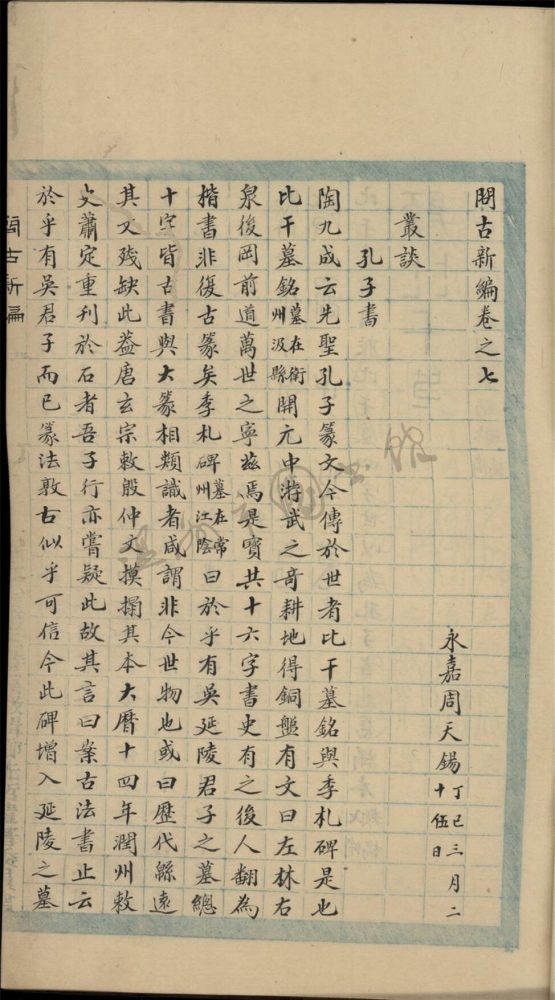 問古新編卷之七
永嘉周天錫丁巳三月二十伍日
叢談
孔子書
陶九成云先聖孔子篆文今傳於世者比干墓銘與季札碑是也
比干墓銘墓在衛州汲縣開元中游武之奇耕地得銅盤有文曰左林右
泉後岡前道萬世之寧兹焉是寶共十六字書史有之後人翻為
楷書非復古篆矣季札碑墓在常州江陰曰於乎有吳延陵君子之墓總
十字皆古書與大篆相類識者咸謂非今世物也或曰歷代緜遠
其文殘缺此葢唐玄宗敕殷仲文摸搨其本大曆十四年潤州敕
史蕭定重刊於石者吾子行亦嘗疑此故其言曰案古法書止云
於乎有吳君子而已篆法敦古似乎可信今此碑增入延陵之墓
問古新編